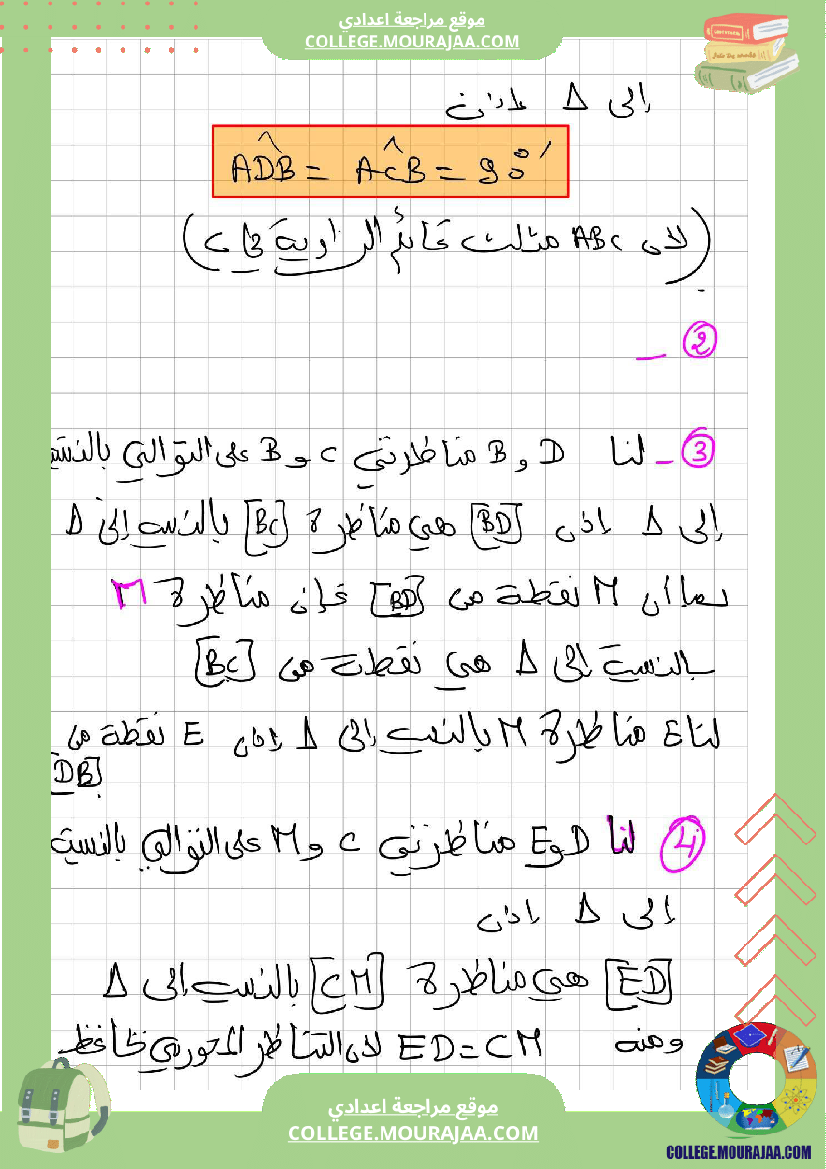 موقع مراجعة اعدادي
COLLEGE.MOURAJAA.COM
إلى Δ فإن
ADB = ACB = 90°
(لأن ABC مثلث قائم الزاوية في C)
2 -
3 - لنا D و B مناظرتي C و B على التوالي بالنسبة
إلى Δ إذن [BD] هي مناظرة [BC] بالنسبة إلى Δ
بما أن M نقطة من [BD] فإن مناظرة M
بالنسبة إلى Δ هي نقطة من [BC]
لنا E مناظرة M بالنسبة إلى Δ إذن E نقطة من
[DB]
4 لنا D و E مناظرتي C و M على التوالي بالنسبة
إلى Δ إذن
[ED] هي مناظرة [CM] بالنسبة إلى Δ
ومنه ED = CM لأن التناظر المحوري يحافظ
موقع مراجعة اعدادي
COLLEGE.MOURAJAA.COM
COLLEGE.MOURAJAA.COM